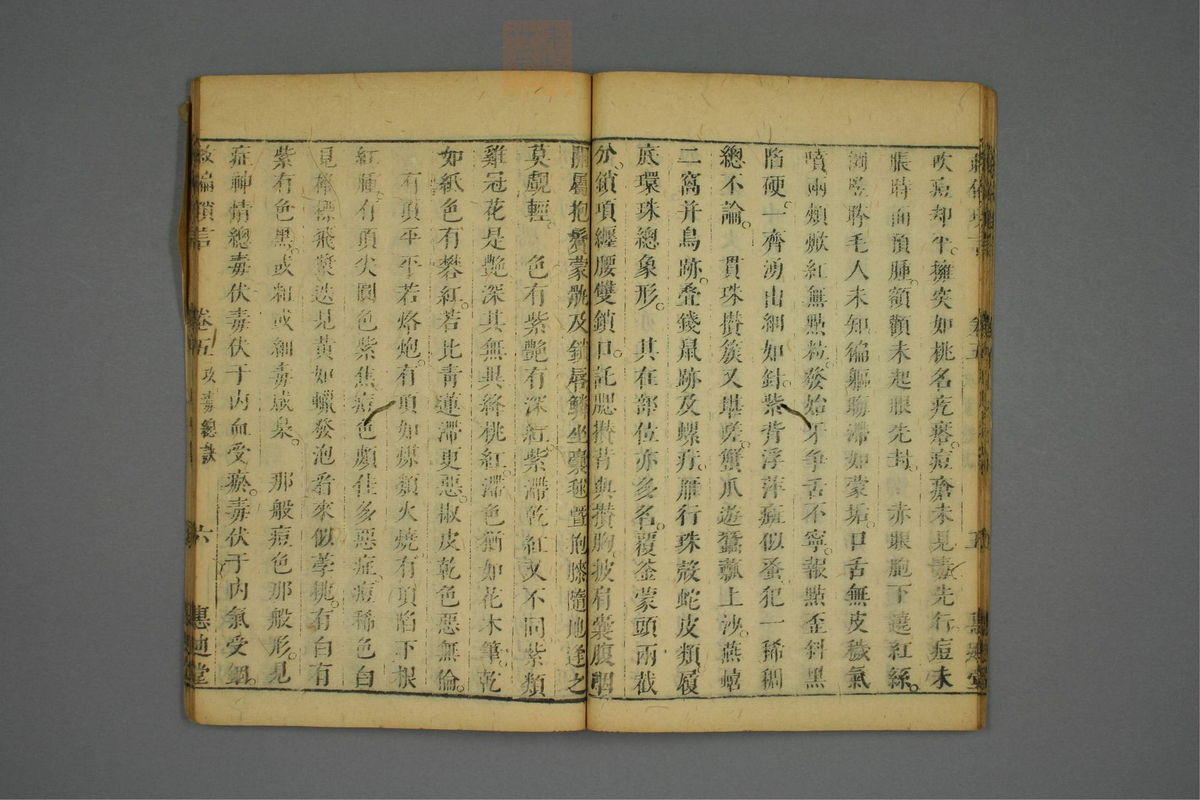 吹痘却平。擁突如桃名疙瘩。痘瘡未見毒先行痘未
脹時面預腫。額顴未起眼先封。赤眼胞下遶紅絲。
毛人未知徧軀瑒滯如蒙垢。口舌無皮穢氣
噴。兩頰焮紅無點粒。發始牙爭舌不寧。報點歪斜黑
陷硬。一齊湧出細如針。紫背浮萍癍似蚤犯一稀稠
總不論。貫珠攢簇又堪嗟。蟹爪遊蠶瓢上沙。燕
二窩并鳥跡。疊錢鼠跡及螺疔。雁行珠殼蛇皮類。履
底環珠總象形。其在部位亦多名。覆釜蒙頭兩截
分。鎖項纏腰雙鎖口。託腮攢背與攢胸。披肩囊腹
屬抱鬢蒙骫及鎖唇鱗坐囊毬曁抱膝隨地逢之
莫覷輕。色有紫艷有深紅。紫滯乾紅又不同紫類
雞冠花是艷深其無異絳桃紅。滯色猶如花木筆。乾
如紙色有礬紅。若比青蓮滯更惡。椒皮乾色惡無倫。
有頂平平若烙炮。有頂如煤類火燒。有頂陷下根
紅腫。有頂尖圓色紫焦痘色頗佳多惡症。痘稀色白
飛漿迭見黃如蠟發泡看來似葶桃。有白有
紫有色黑。或粗或細毒咸泉。那般痘色那般形。見
症神情總毒伏毒伏于內血受瘀。毒伏于內氣受錮。
救偏瑣言 卷五 攻毒總訣 六 惠迪堂